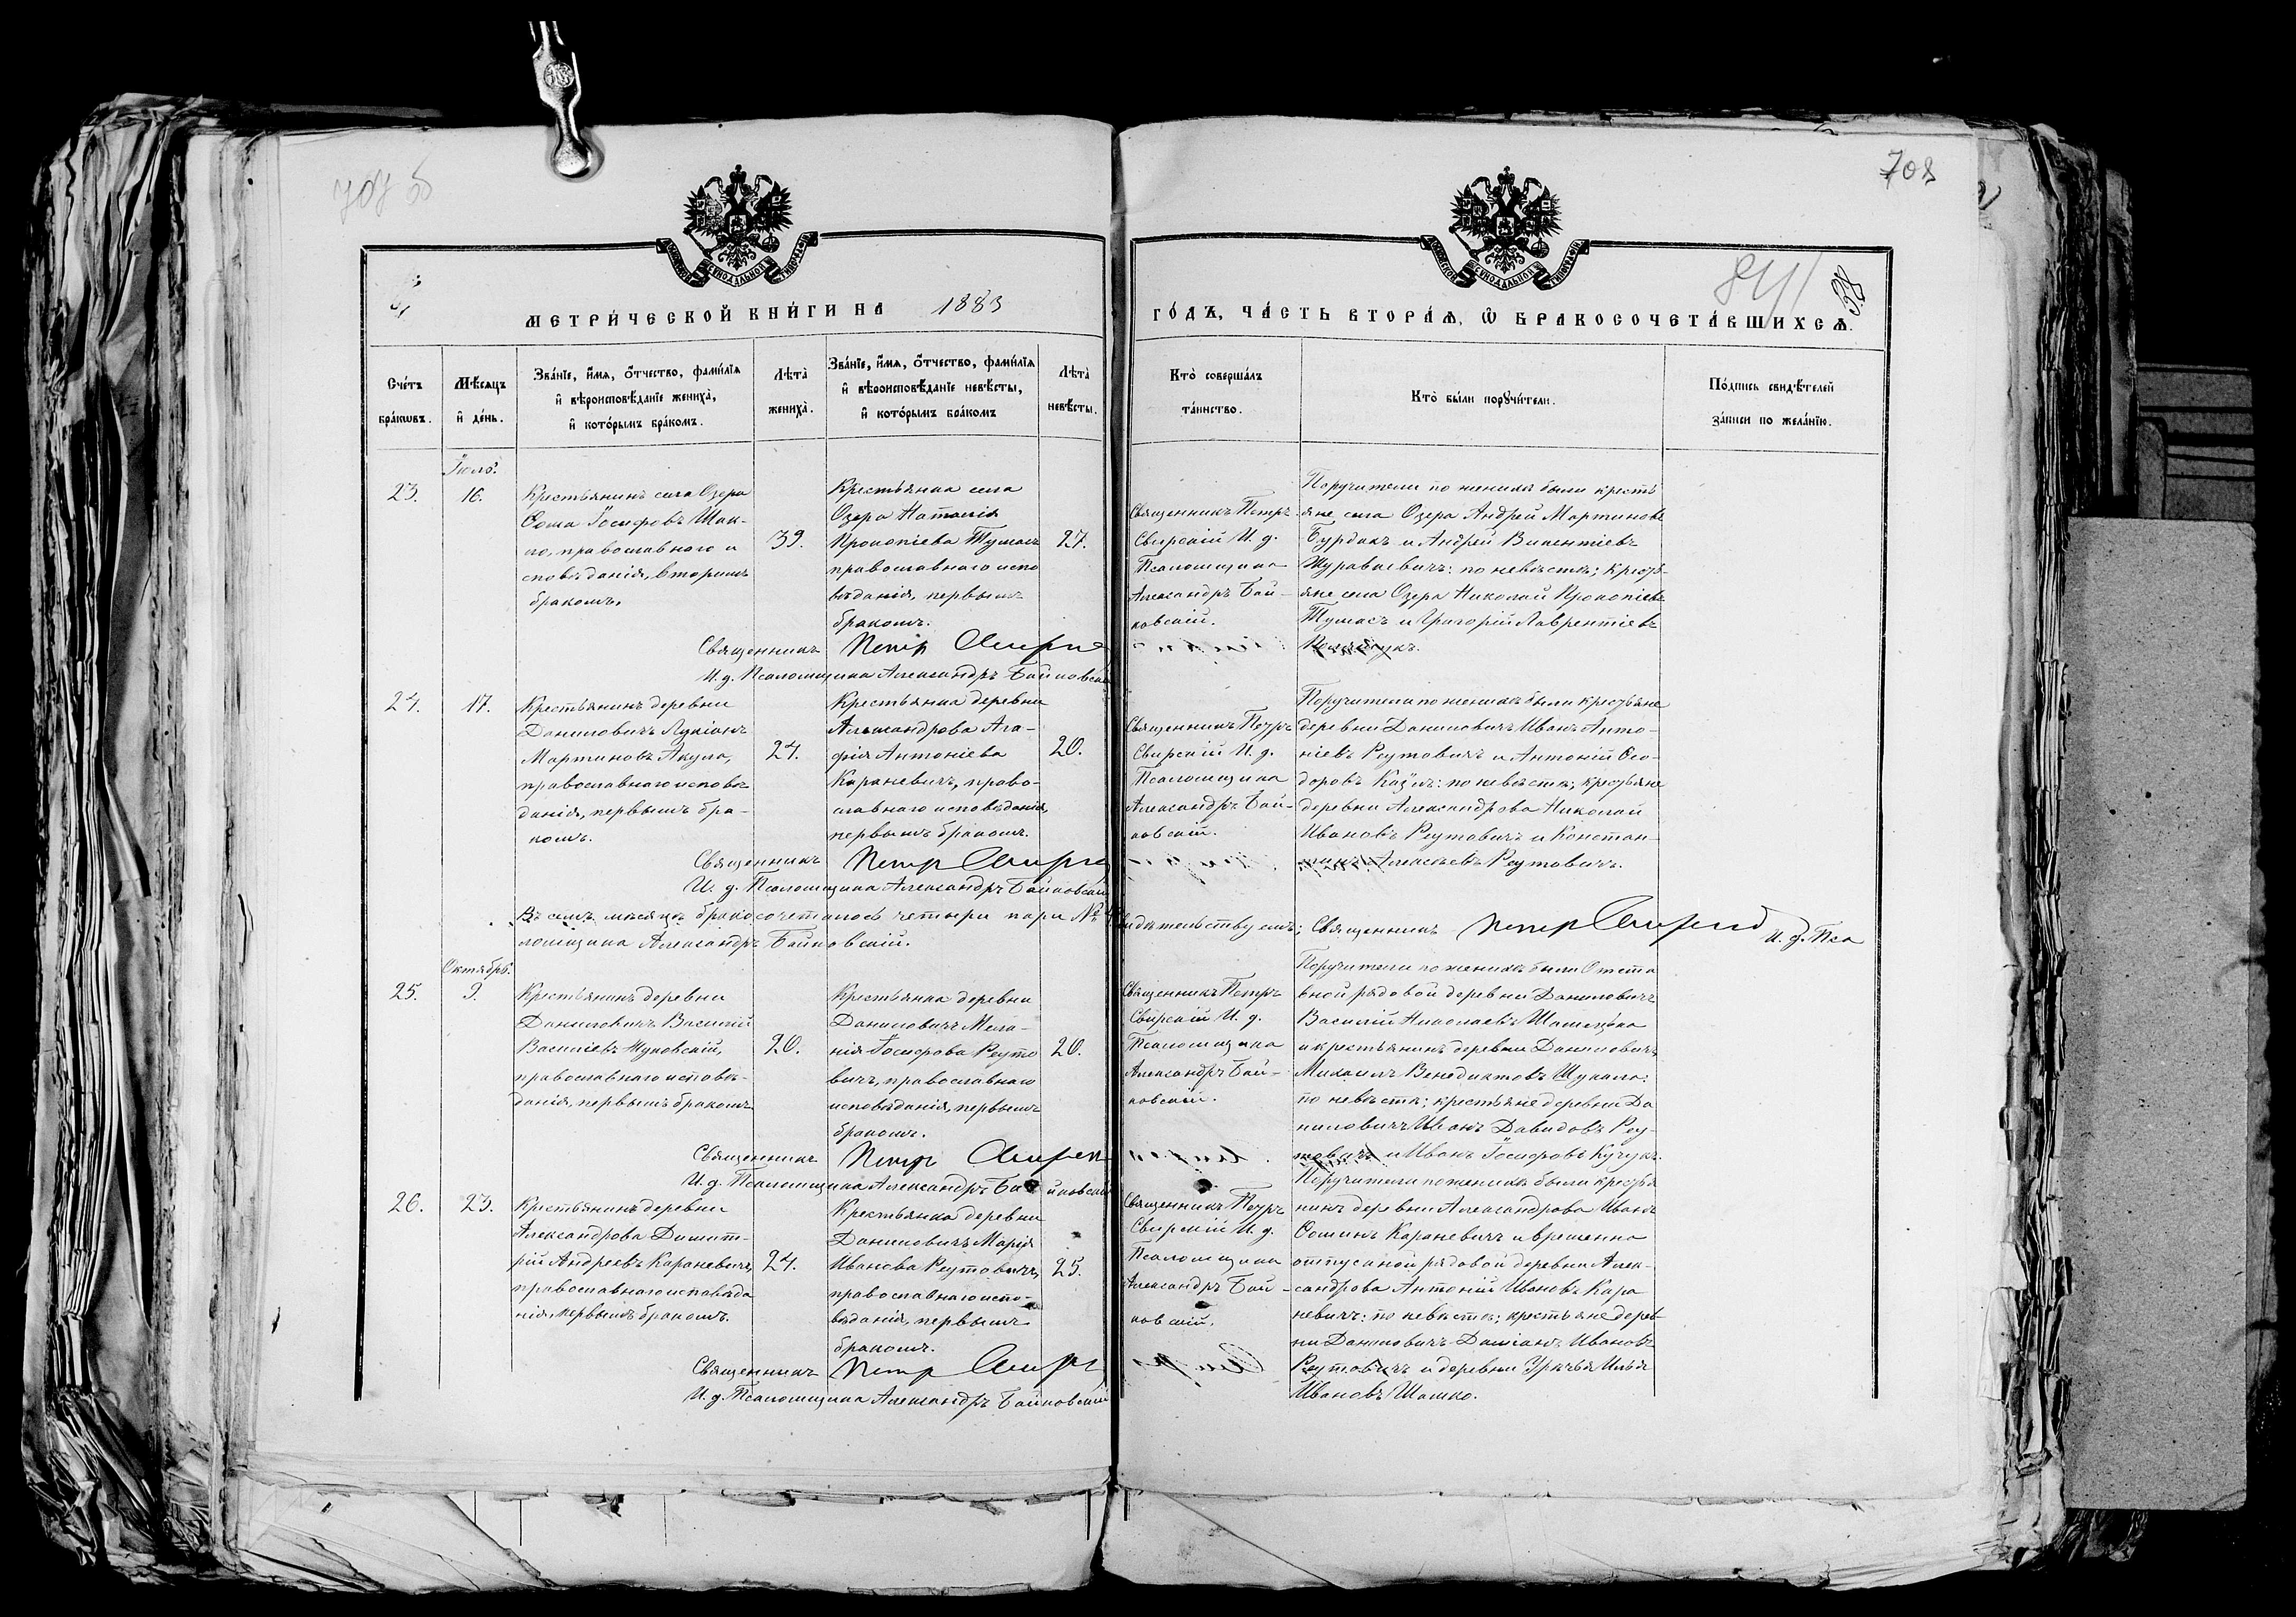 707 б
708
МОСКОВСКОЙ СѴНОДАЛЬНОЙ ТИПОГРАФІИ
МОСКОВСКОЙ СѴНОДАЛЬНОЙ ТИПОГРАФІИ
841
38
МЕТРИ́ЧЕСКОЙ КНИ́ГИ НА 1883
ГО́ДЪ, ЧА́СТЬ ВТОРА́Ѧ, Ѽ БРАКОСОЧЕТА́ВШИХСѦ.
Сче́тъ бра́кѡвъ.
Мѣ́сяцъ и҆ де́нь.
Зва́нїе, и҆́мѧ, ѻ҆́тчество, фами́лїѧ
и҆ вѣроисповѣ́данїе жениха̀,
и҆ кото́рымъ бра́комъ.
Лѣ́та̀ жениха̀.
Зва́нїе, и҆́мѧ, ѻ҆́тчество, фами́лїѧ
и҆ вѣроисповѣ́данїе невѣ́сты,
и҆ кото́рымъ бра́комъ
Лѣ́та̀ невѣ́сты.
Кто̀ соверша́лъ
та́инство.
Кто̀ бы́ли порꙋчи́тели.
По́дпись свидѣ́телей
за́писи по жела́нїю.
Іюль.
23.
16.
Крестьянинъ села Озера
Ѳома Іосифовъ Шак-
ло, православнаго и
сповѣданія, вторымъ
бракомъ.
39.
Крестьянка села
Озера Наталія
Прокопіева Тумасъ
православнаго испо
вѣданія, первымъ
бракомъ.
27.
Священникъ Петръ
Свирскій И. д.
Псаломщика
Александръ Бай-
ковскій.
Поручители по женихѣ были кресть
яне села Озера Андрей Мартиновъ
Бурдакъ и Андрей Викентіевъ
Журавкевичъ: по невѣстѣ; кресть-
яне села Озера Николай Прокопіевъ
Тумасъ и Григорій Лаврентіевъ
Священникъ Петръ
И. д. Псаломщика Александръ Байковскій
24.
17.
Крестьянинъ деревни
Даниловичъ Лукіанъ
Мартиновъ Акула,
православнаго исповѣ
данія, первымъ бра-
комъ.
24.
Крестьянка деревни
Александрова Ага-
фія Антоніева
Караневичъ, право-
славнаго исповѣданія,
первымъ бракомъ.
20.
Священникъ Петръ
Свирскій И. д.
Псаломщика
Александръ Бай-
ковскій.
Поручители по женихѣ были крестьяне
деревни Даниловичъ Иванъ Анто-
ніевъ Реутовичъ и Антоній Ѳео-
доровъ Казулъ: по невѣстѣ; крестьяне
деревни Александрова Николай
Ивановъ Реутовичъ и Констан-
тинъ Алексѣевъ Реутовичъ.
Священникъ Петръ
И. д. Псаломщика Александръ Байковскій
Въ семъ мѣсяцѣ бракосочеталось четыри пари №
видѣтельствуемъ; Священникъ Петръ Свирскій И. д. Пса
ломщика Александръ Байковскій.
Октябрь.
25.
9.
Крестьянинъ деревни
Даниловичъ Василій
Василіевъ Жуковскій,
православнаго исповѣ-
данія, первымъ бракомъ
20.
Крестьянка деревни
Даниловичъ Мела-
нія Іосифова Реуто
вичъ, православнаго
исповѣданія, первымъ
бракомъ.
20.
Священникъ Петръ
Свирскій И. д.
Псаломщика
Александръ Бай-
ковскій.
Поручители по женихѣ были Отста
вной рядовой деревни Даниловичъ
Василій Николаевъ
и крестьянинъ деревни Даниловичъ
Михаилъ Венедиктовъ Шукало:
по невѣстѣ; крестьяне деревни Да
ниловичъ Иванъ Давидовъ Реу-
товичъ и Иванъ Іосифовъ Кучукъ.
Священникъ Петръ
И. д. Псаломщика Александръ Байковскій
26.
23.
Крестьянинъ деревни
Александрова Димит-
рій Андреевъ Караневичъ,
православнаго исповѣда
нія, первымъ бракомъ.
24.
Крестьянка деревни
Даниловичъ Марія
Иванова Реутовичъ,
православнаго испо-
вѣданія, первымъ
бракомъ.
25.
Священникъ Петръ
Свирскій И. д.
Псаломщика
Александръ Бай-
ковскій.
Поручители по женихѣ были крестья
нинъ деревни Александрова Иванъ
Ѳоминъ Караневичъ и временно
отпускной рядовой деревни Алек-
сандрова Антоній Ивановъ Кара
невичъ: по невѣстѣ; крестьяне дерев
ни Даниловичъ Даміанъ Ивановъ
Реутовичъ и деревни Урѣчья Илья
Ивановъ Шашко.
Священникъ Петръ
И. д. Псаломщика Александръ Байковскій